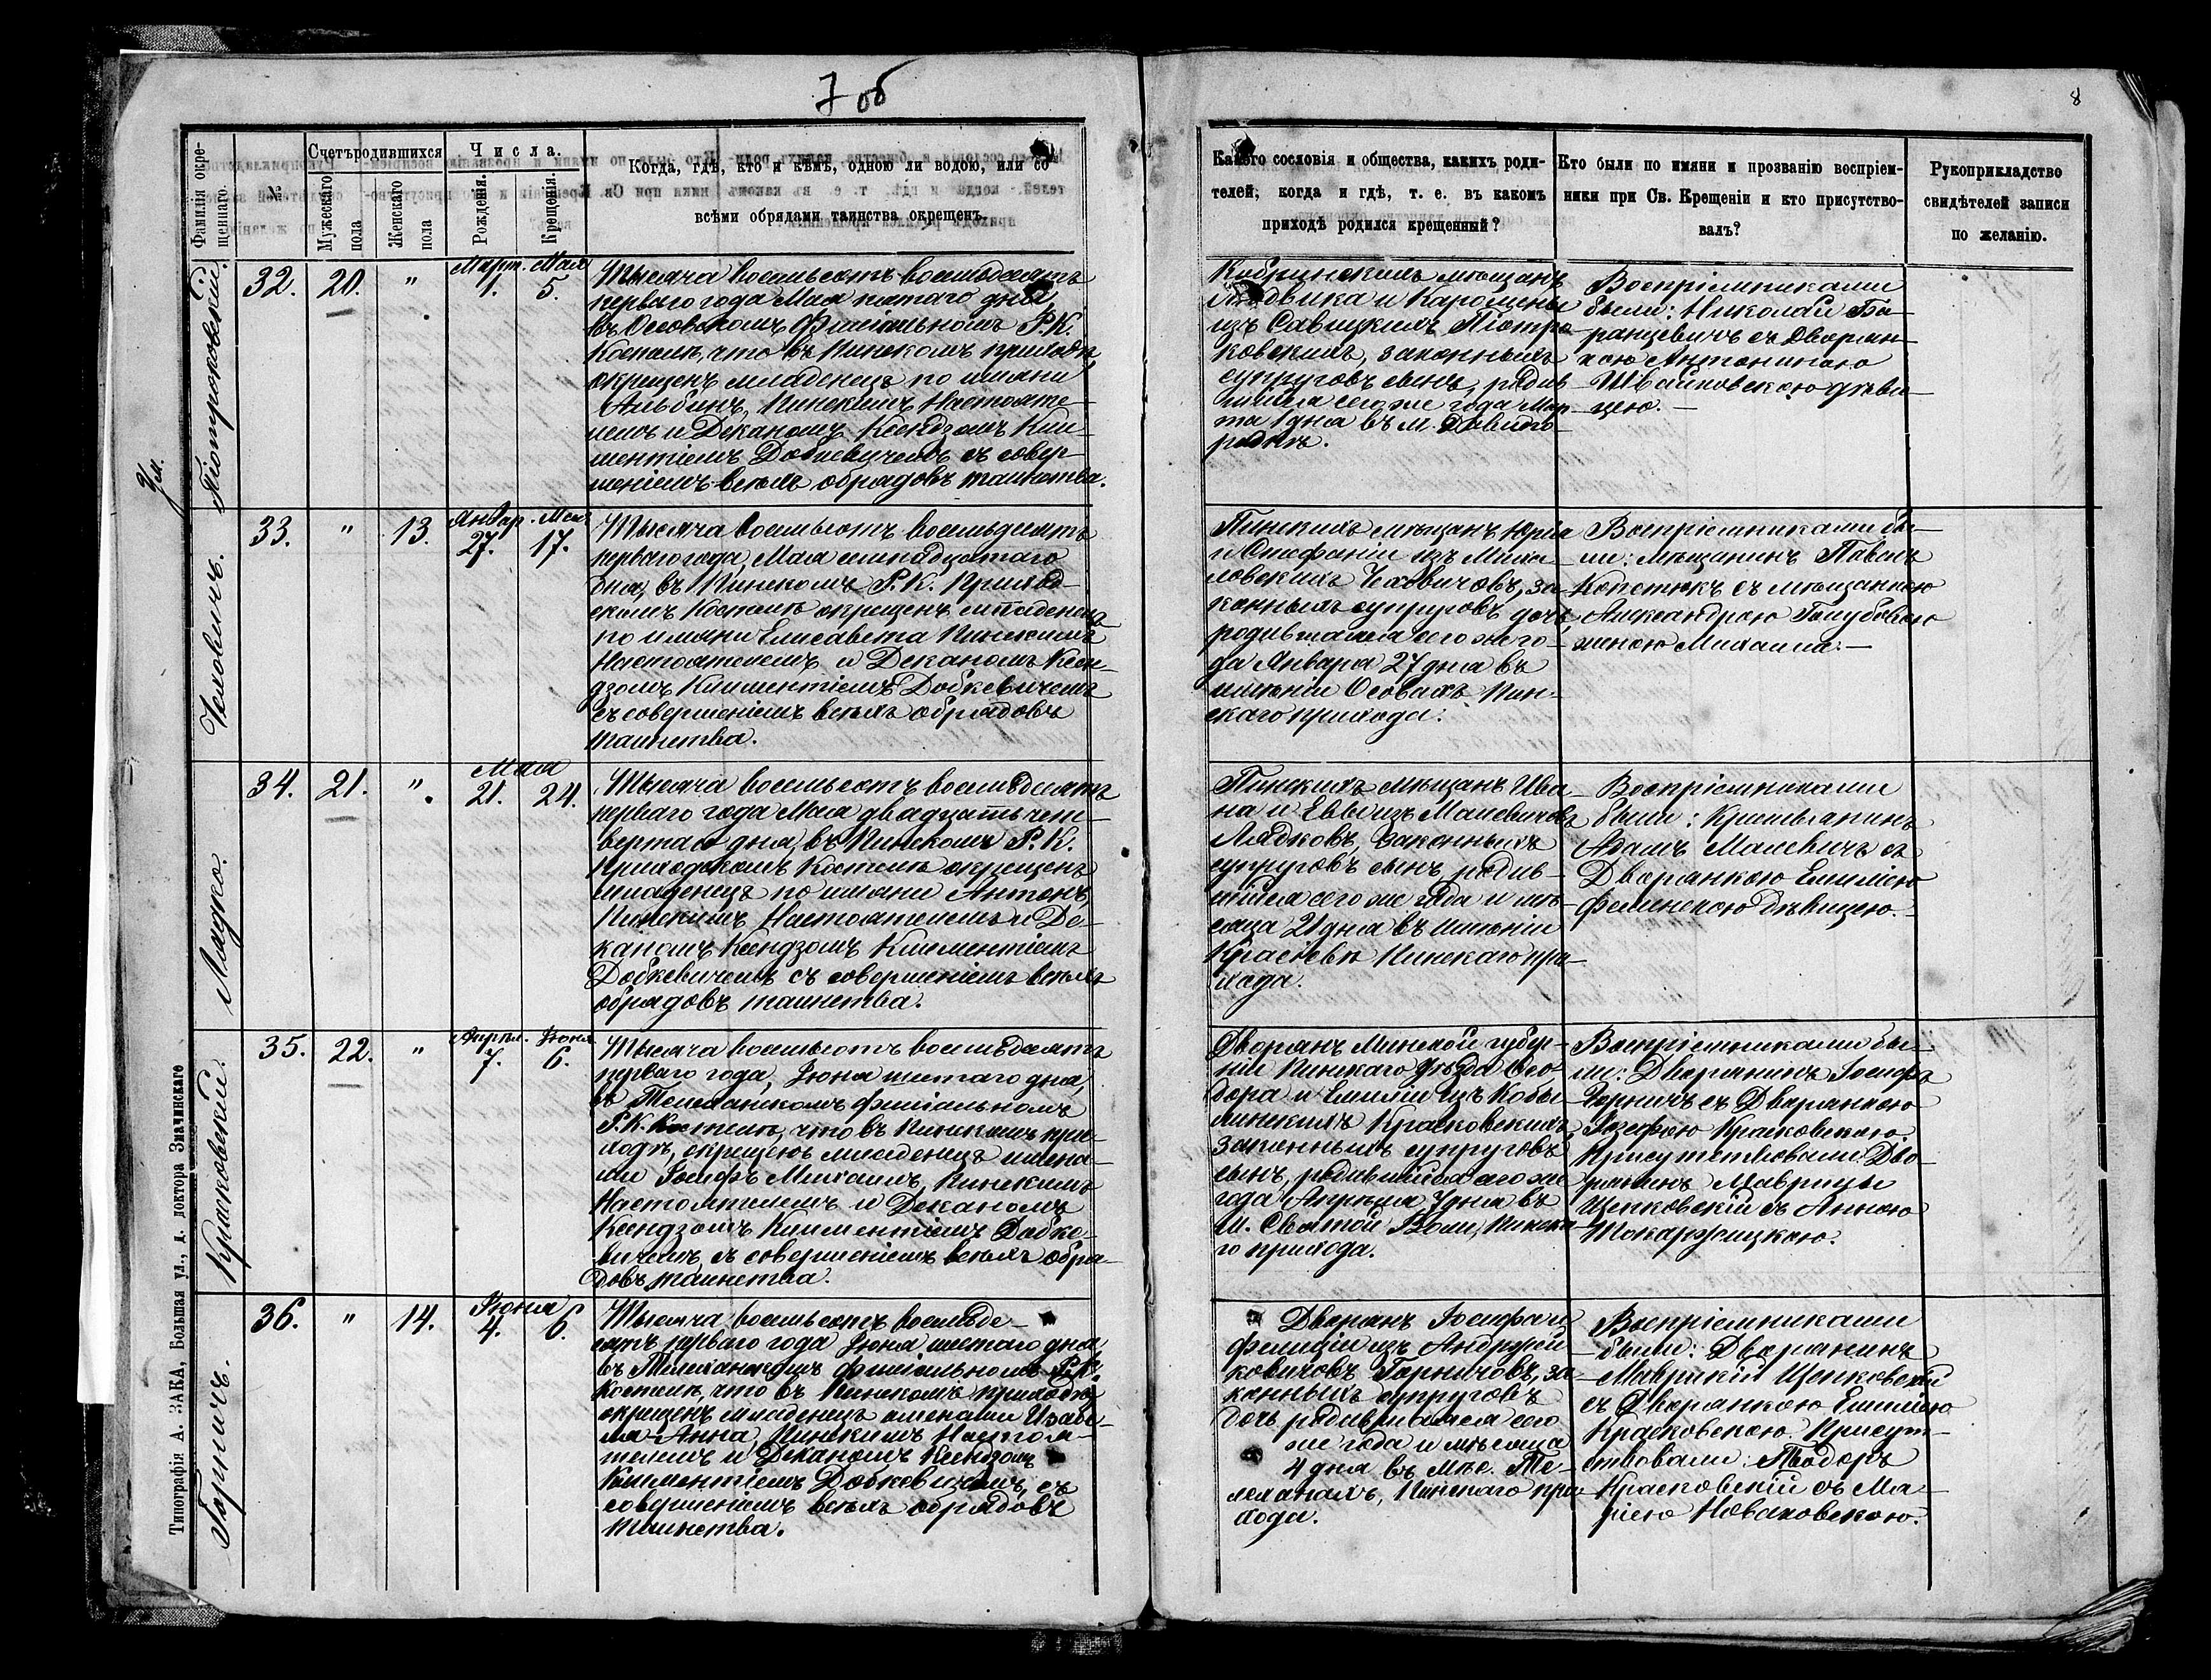 7 об
8
Фамилія окрещеннаго.
№
Счетъ родившихся
Мужескаго пола
Женскаго пола
Числа.
Рожденія.
Крещенія.
Когда, гдѣ, кто и кѣмъ, одною ли водою, или со
всѣми обрядами таинства окрещенъ.
Какого сословія и общества, какихъ роди-
телей, когда и гдѣ, т. е. въ какомъ
приходѣ родился крещенный?
Кто были по имяни и прозванію воспріем-
ники при Св. Крещеніи и кто присутство-
валъ?
Рукоприкладство
свидѣтелей записи
по желанію.
Ум.
Піотроковскій.
32. 20. "
Март. Мая
1. 5.
Тысяча восемьсотъ восемьдесятъ
перваго года Мая пятаго дня,
въ Осовскомъ Филіальномъ Р. К.
Костелѣ, что въ Пинскомъ приходѣ
окрещенъ младенецъ по имяни
Альбинъ, Пинскимъ Настояте-
лемъ и Деканомъ Ксендзомъ Кли-
ментіемъ Добкевичемъ съ совер-
шеніемъ всѣхъ обрядовъ таинства.
Кобринскихъ мѣщанъ
Людвика и Каролины
изъ Савицкихъ Піотро-
ковскихъ, законныхъ
супруговъ сынъ, родив-
шійся сего же года Мар-
та 1 дня въ м. Давидго-
родкѣ.
Воспріемниками
были: Николай Ба-
ранцевичъ съ Дворян-
кою Антониною
Швайковскою дѣви-
цею.
Чеховичъ.
33. " 13.
Январ. Мая
27. 17.
Тысяча восемьсотъ восемьдесятъ
перваго года, Мая семнадцатаго
дня, въ Пинскомъ Р. К. Приход-
скомъ Костелѣ окрещенъ младенецъ
по имяни Елисавета Пинскимъ
Настоятелемъ и Деканомъ Ксен-
дзомъ Климентіемъ Добкевичемъ
съ совершеніемъ всѣхъ обрядовъ
таинства.
Пинскихъ мѣщанъ Юрія
и Стефаніи изъ Миха-
ловскихъ Чеховичовъ, за-
конныхъ супруговъ дочь,
родившаяся сего же го-
да Января 27 дня въ
имѣніи Осовахъ Пин-
скаго прихода.
Воспріемниками бы-
ли: мѣщанинъ Павелъ
Копетюкъ съ мѣщанкою
Александрою Голубовою
женою Михаила.
Лядко.
34. 21. "
Мая
21. 24.
Тысяча восемьсотъ восемьдесятъ
перваго года Мая двадцать чет-
вертаго дня, въ Пинскомъ Р. К.
Приходскомъ Костелѣ окрещенъ
младенецъ по имяни Антонъ,
Пинскимъ Настоятелемъ и Де-
каномъ Ксендзомъ Климентіемъ
Добкевичемъ съ совершеніемъ всѣхъ
обрядовъ таинства.
Пинскихъ мѣщанъ Ива-
на и Евы изъ Малевичовъ
Лядковъ, законныхъ
супруговъ сынъ, родив-
шійся сего же года и мѣ-
сяца 21 дня въ имѣніи
Красіевѣ Пинскаго при-
хода.
Воспріемниками
были: Крестьянинъ
Адамъ Малевичъ съ
Дворянкою Емиліею
Фелинскою дѣвицею.
Красковскій.
35. 22. "
Апрѣл. Іюня
7. 6.
Тысяча восемьсотъ восемьдесятъ
перваго года, Іюня шестаго дня,
въ Телеханскомъ филіальномъ
Р. К. Костелѣ, что въ Пинскомъ при-
ходѣ, окрещенъ младенецъ имена-
ми Іосифъ Михаилъ, Пинскимъ
Настоятелемъ и Деканомъ
Ксендзомъ Климентіемъ Добке-
вичемъ, съ совершеніемъ всѣхъ обря-
довъ таинства.
Дворянъ Минской губер-
ніи Пинскаго уѣзда Ѳео-
дора и Емиліи изъ Кобы-
линскихъ Красковскихъ,
законныхъ супруговъ
сынъ, родившійся сего же
года Апрѣля 7 дня въ
м. Святой Воли, Пинска-
го прихода.
Воспріемниками бы-
ли: Дворянинъ Іосифъ
Горничъ съ Дворянкою
Іозефою Красковскою.
Присутствовали: Дво-
рянинъ Маврицы
Щепковскій съ Анною
Токаржицкою.
Горничъ.
36. " 14.
Іюня
4. 6.
Тысяча восемьсотъ восемьде-
сятъ перваго года Іюня шестаго дня,
въ Телеханскомъ филіальномъ Р. К.
Костелѣ, что въ Пинскомъ приходѣ,
окрещенъ младенецъ именами Изабе-
ла Анна, Пинскимъ Настоя-
телемъ и Деканомъ Ксендзомъ
Климентіемъ Добкевичемъ, съ
совершеніемъ всѣхъ обрядовъ
таинства.
Дворянъ Іосифа и
Фелиціи изъ Андрушко-
ковичовъ Горничовъ, за-
конныхъ супруговъ
дочь родившаяся сего
же года и мѣсяца
4 дня въ мѣс. Те-
леханахъ, Пинскаго при-
хода.
Воспріемниками
были: Дворянинъ
Маврикій Щепковскій
съ Дворянкою Емиліею
Красковскою. Присут-
ствовали: Ѳеодоръ
Красковскій съ Ма-
ріею Новаковскою.
Типографія А. ЗАКА, Большая ул., д. доктора Значинскаго